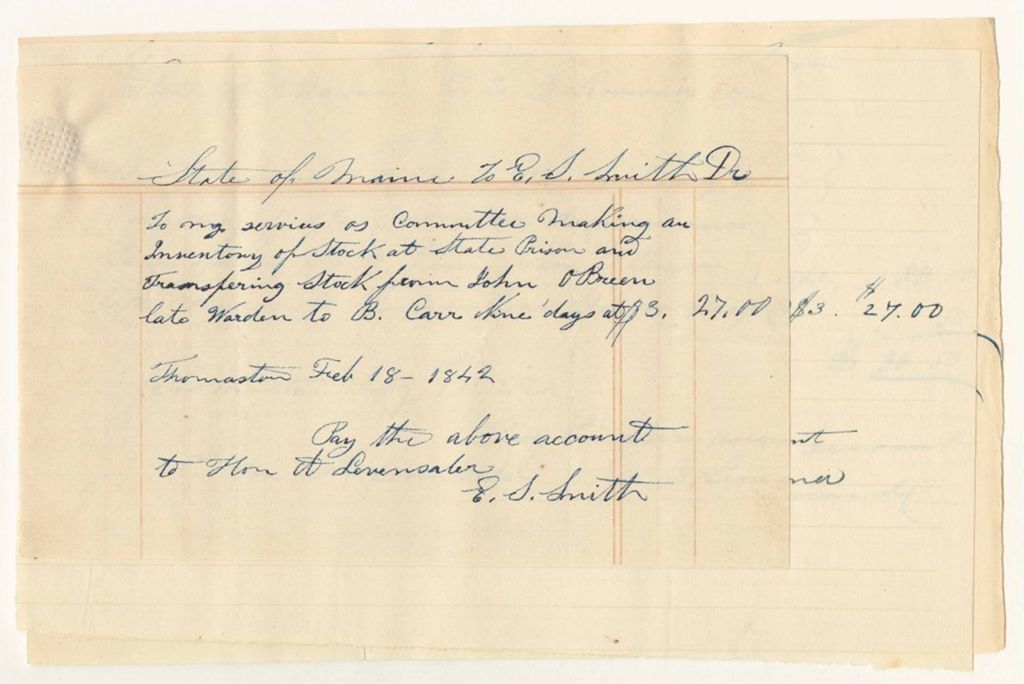 State of Maine To E. S. Smith Dr
To my services as Committee Making an
Inventory of Stock at State Prison and
Transfering Stock from John O'Breen
late Warden to B. Carr Nine days at $3. 27.00 $3. $27.00
Thomaston Feb 18 - 1842
Pay the above account
to Hon A Levensaler
E. S. Smith